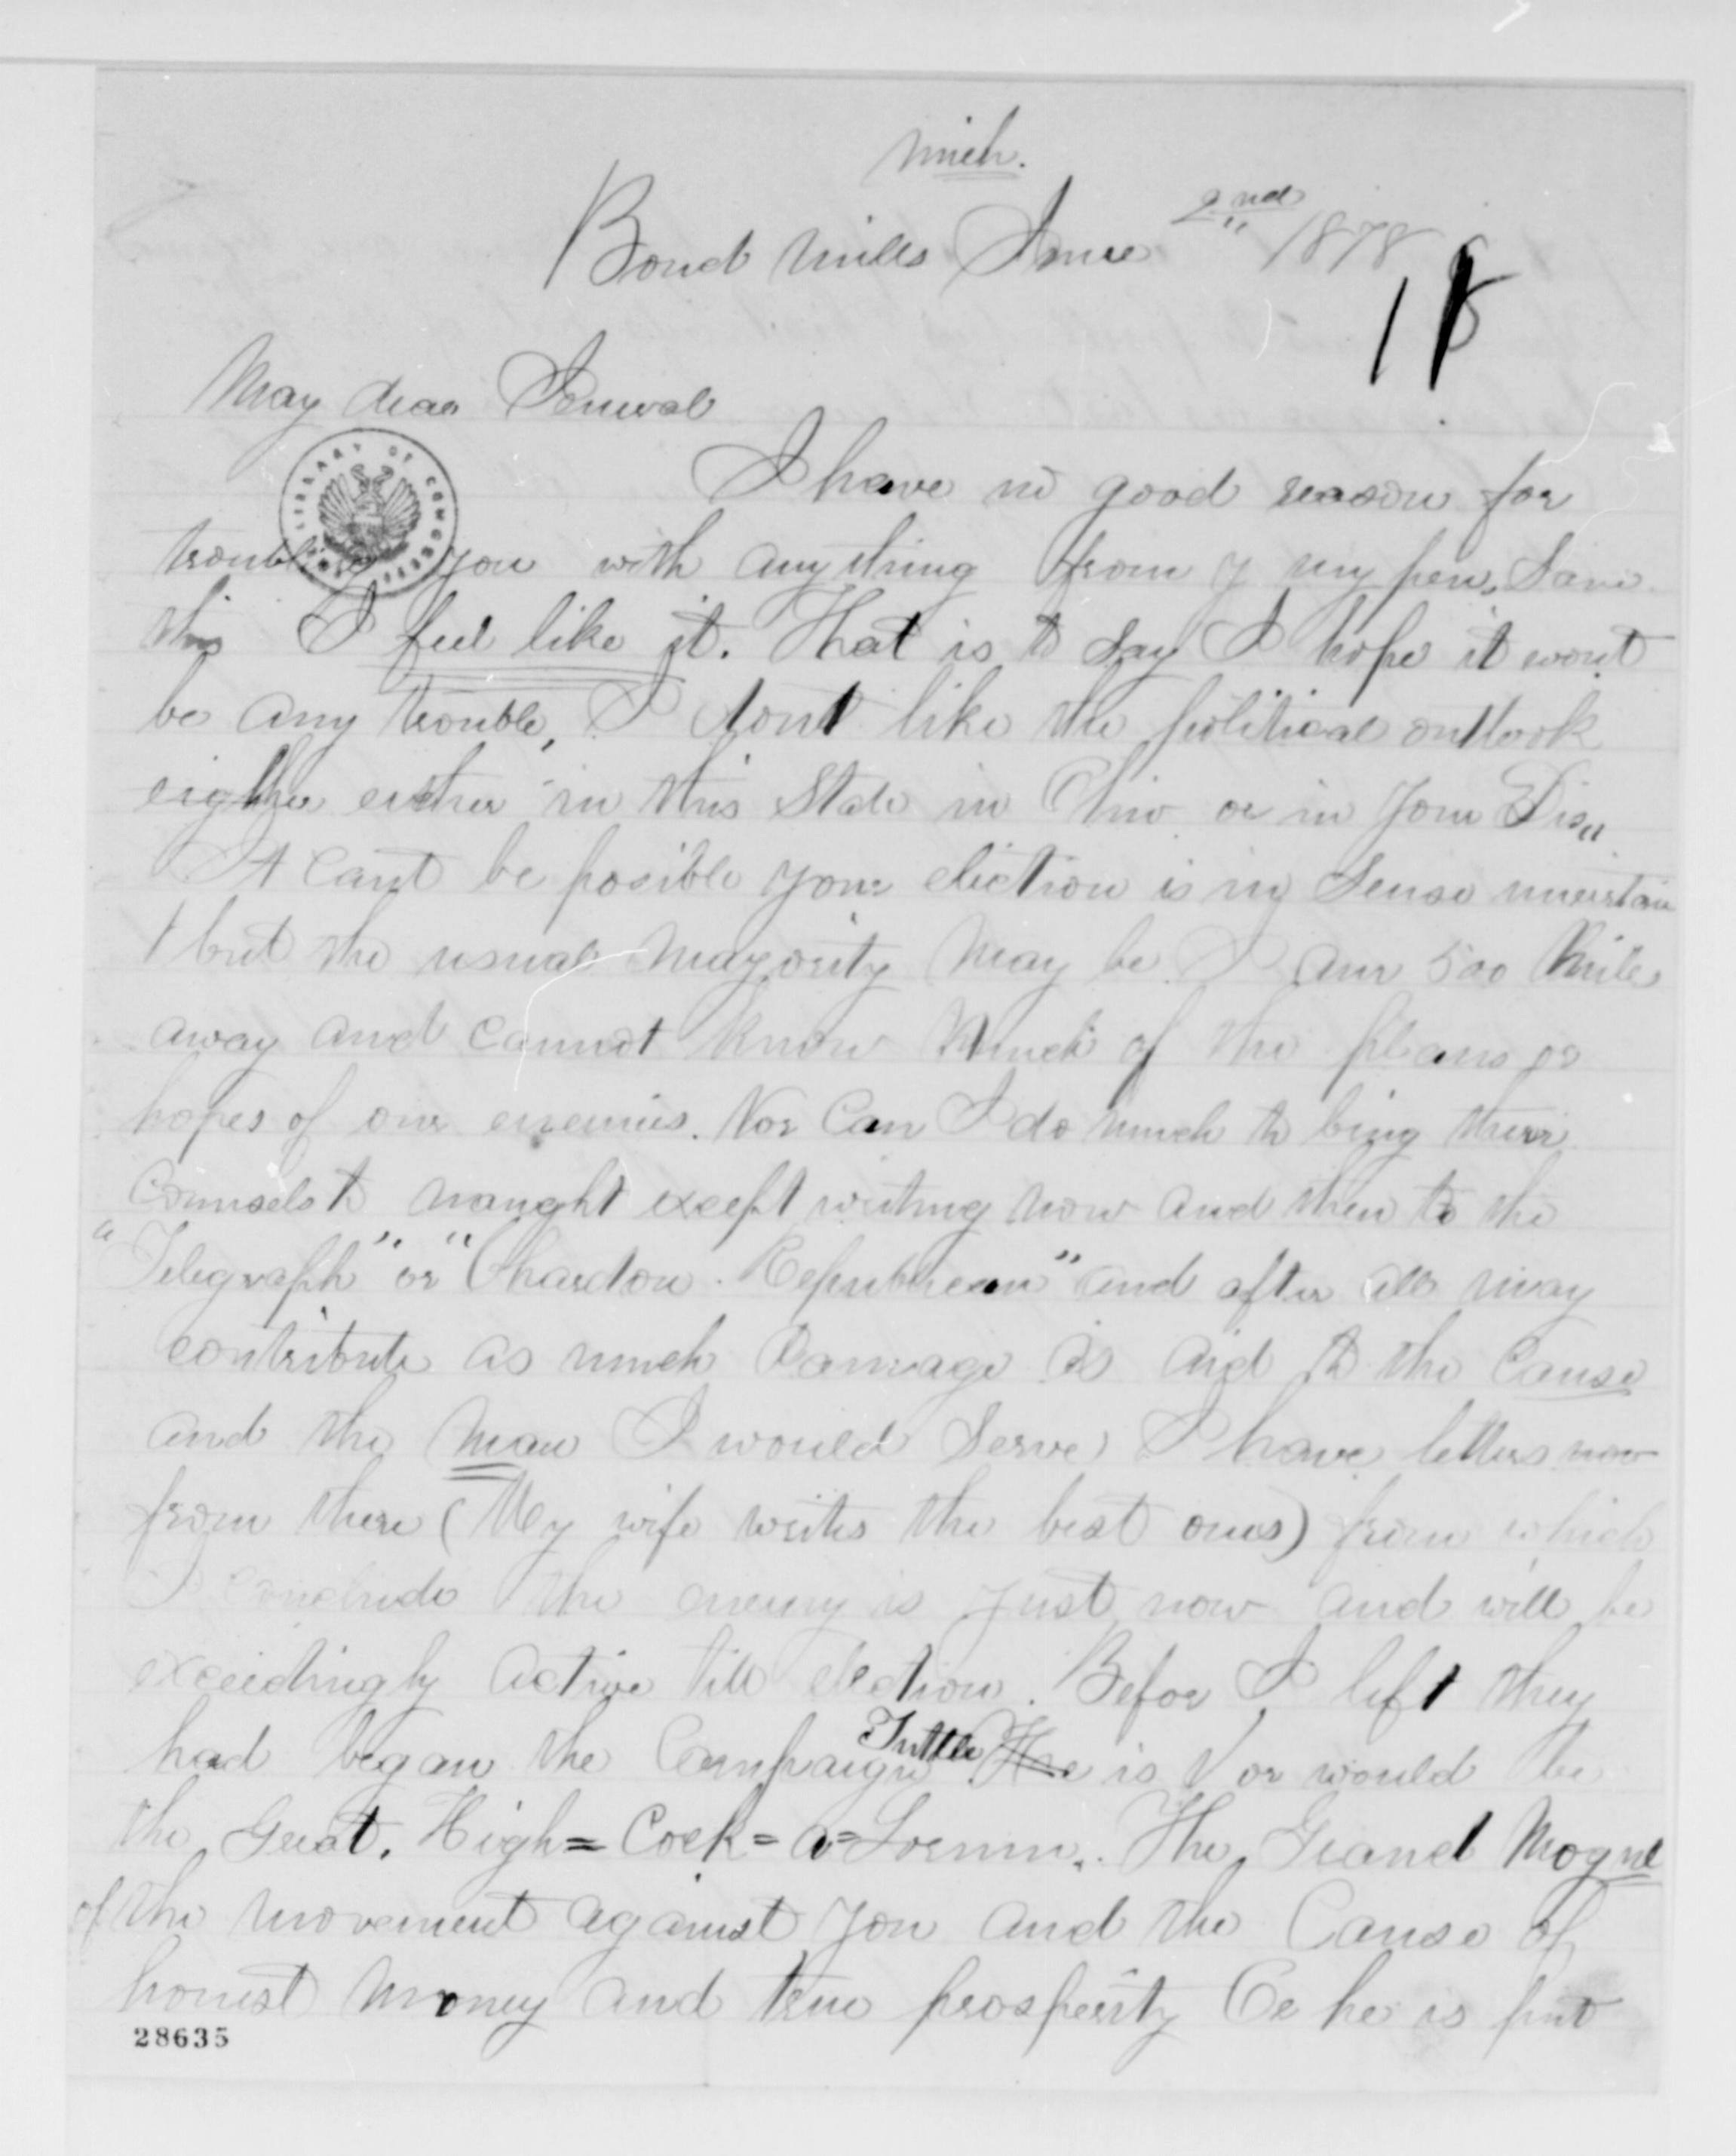 Mich.
Bond Mills June 2nd 1878
18
May dear General
I have no good reason for
troubling you with anything from y my pen, Save
this I feel like it. That is to say I hope it wont
be any trouble, I dont like the political outlook
eigther either in this State in Ohio or in your Dis"
It cant be posible your election is in Sense uncertain
but the usual mayority may be. I am 500 Mile
away and cannot know Much of the plans or
hopes of our enemies. Nor Can I do much to bing their
Counsels to naught exceft writing now and then to the
"Telegraph" or "Chardon Republican" and after all may
contribute as much Damage as aid to the Cause
and the Man I would Serve, I have letters now
from there (My wife writes the best ones) from which
I conclude the enemy is just now and will be
exceedingly active till election. Befor I left they
had began the Campaign Tuttle He is or would be
the Great, High=Cock=a=Lorum. The Grand Mogul
of the movement against you and the Cause of
honest Money and true prosperity Ce he is put
28635
LIBRARY OF CONGRESS